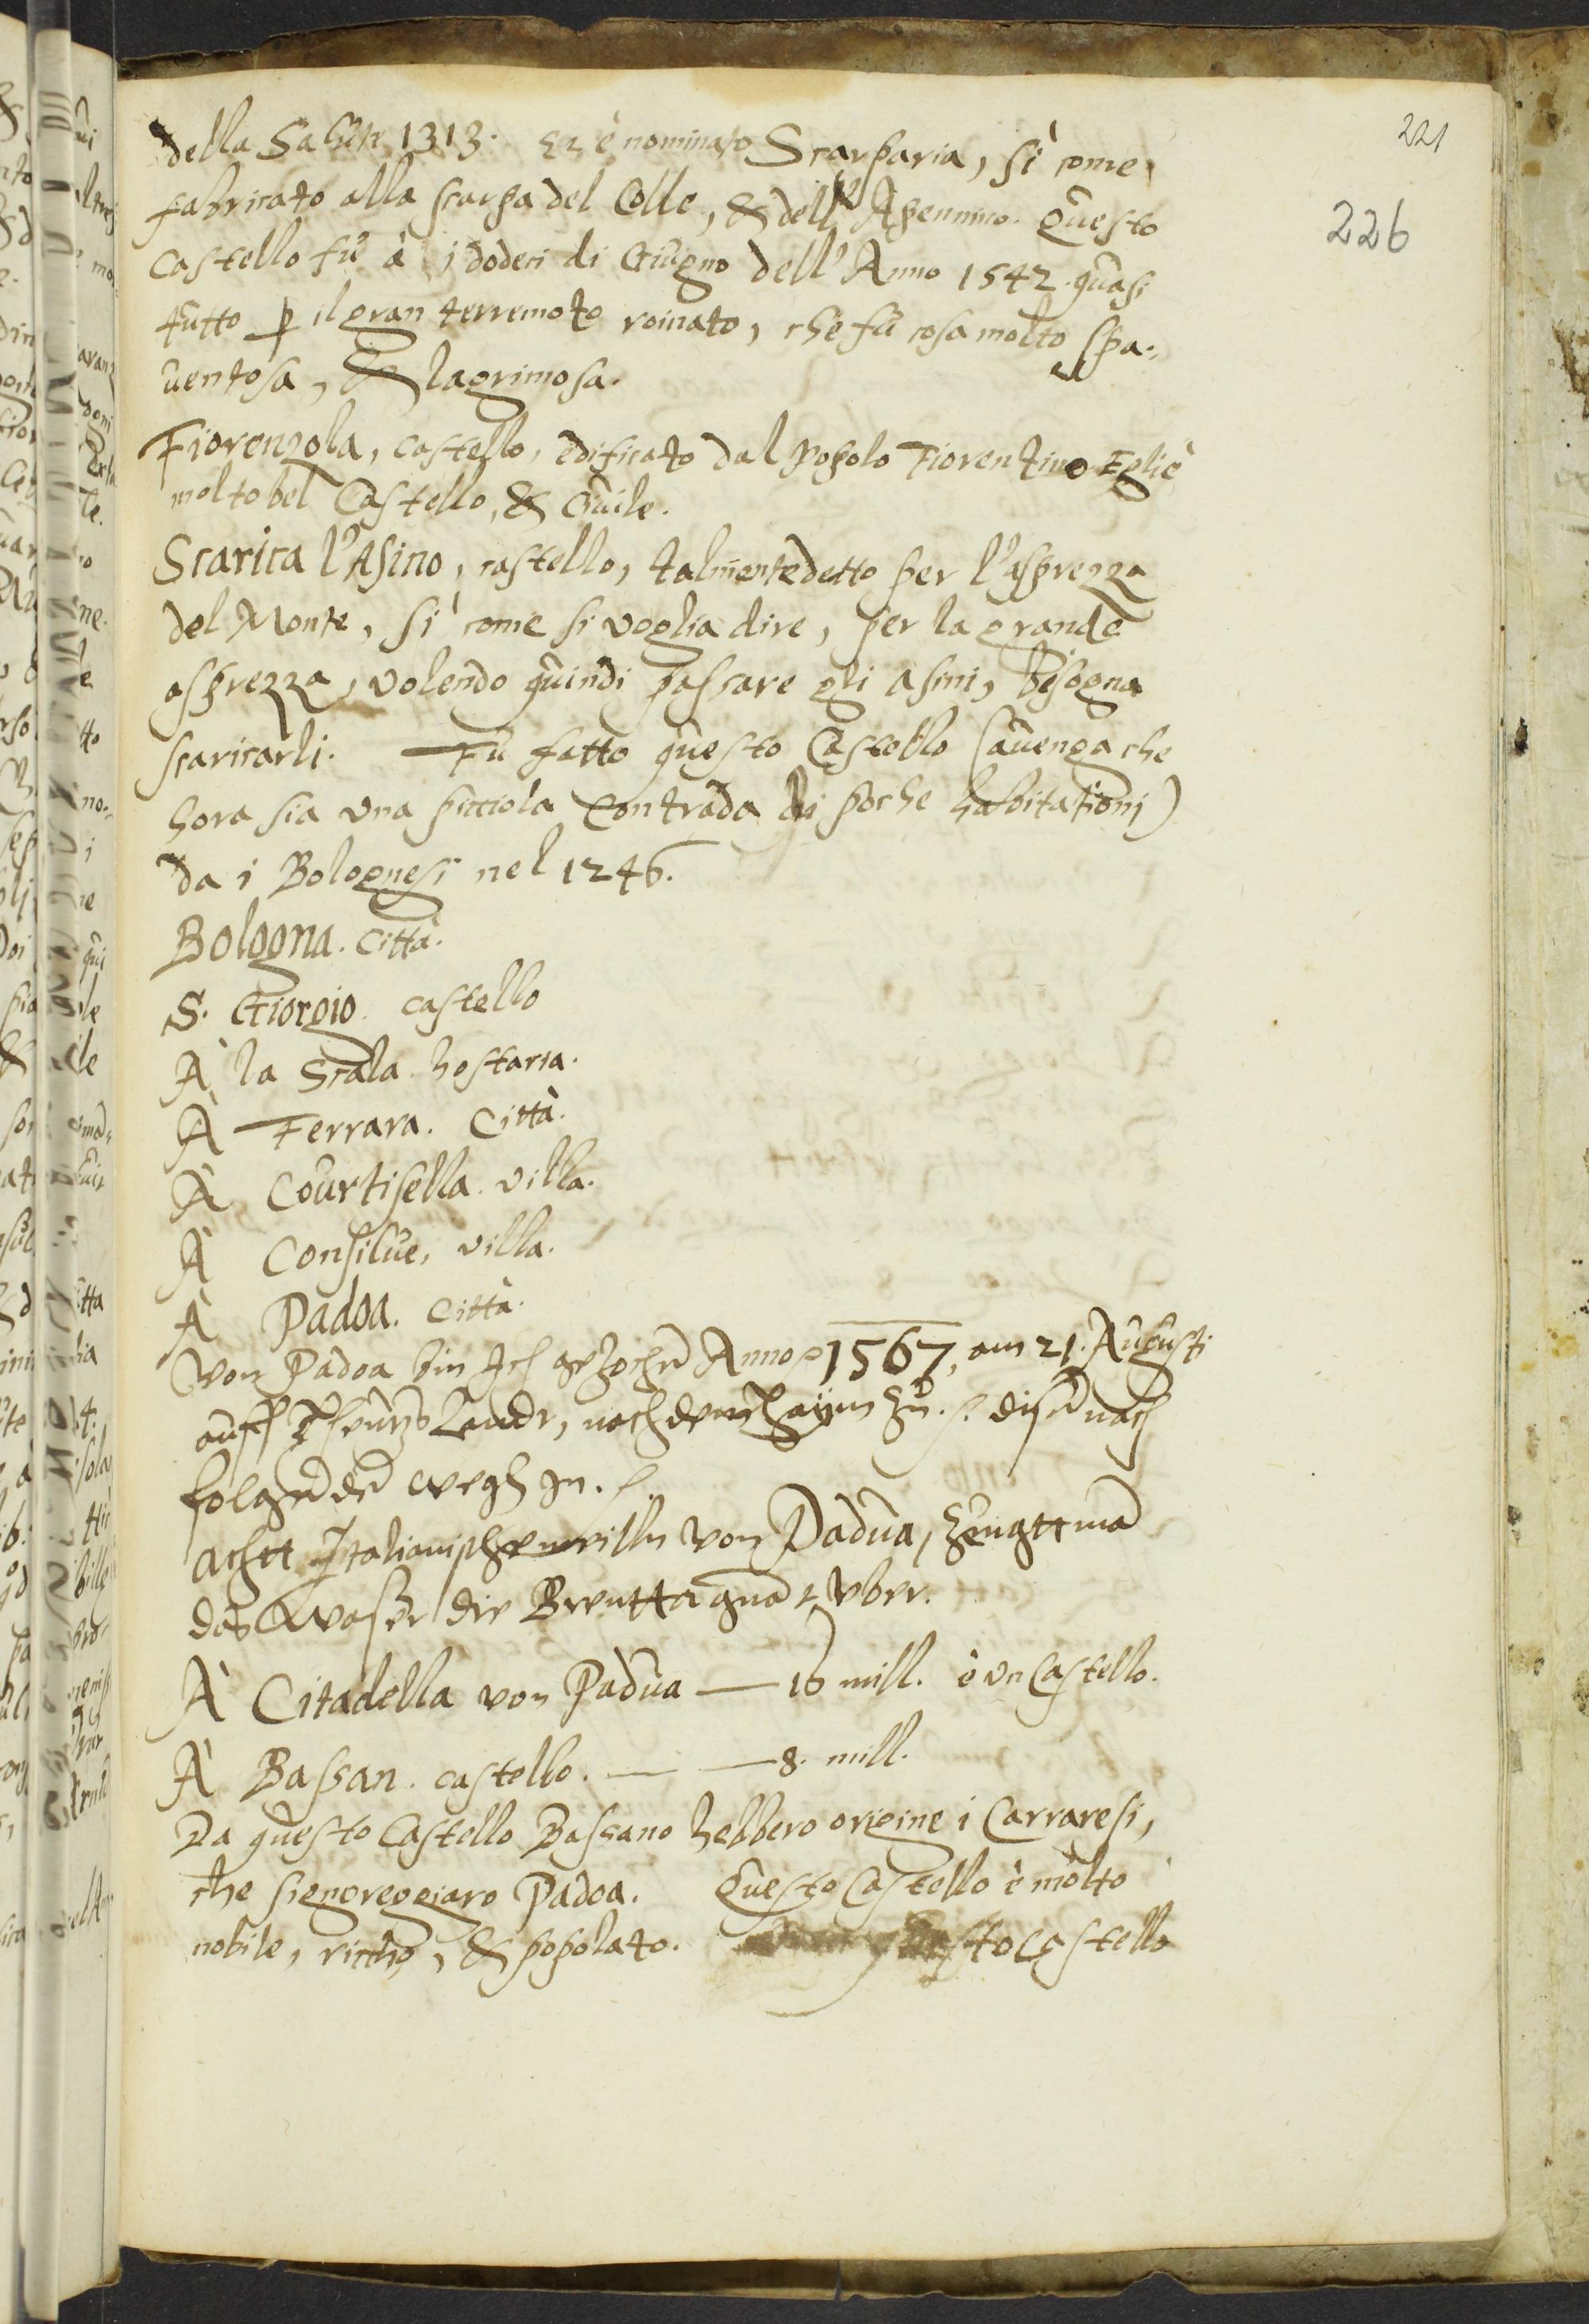 221
226
della Salute 1313. Et è nominato Scarparia, sì come
fabricato alla scarpa del Colle, & dell' Apennino. Questo
Castello fù à i doderi di Giugno dell' Anno 1542. quasi
tutto p il gran terremoto roinato, che fù cosa molto spa-
uentosa, & lagrimosa.
Fiorenzola, castello, edificato dal Popolo Fiorentino Egliè
molto bel Castello, & Ciuile.
Scarica l'Asino, castello, talmente detto per l'asprezza
del Monte, sì come si voglia dire, per la grande
asprezza, volendo quindi passare gli asini, bisogna
scaricarli. Fù fatto questo Castello (auenga che
hora sia una picciola Contrada di poche habitationi)
da i Bolognesi nel 1246.
Bologna. Città.
S. Giorgio. castello
À la Scala. hostaria.
À Ferrara. Città.
À Courtisella. villa.
À Consilue, villa.
À Padoa. Città.
Von Padoa bin Ich gezochen Anno 1567, am 21. Augusti
auff Landt, nach dem zu. disen nach
folgenden wegh
acht Italianischen milln von Padua,
das Wasser die Brentta uber.
À Citadella von Padua — 16 mill. è un Castello.
À Bassan. castello. — — 8. mill.
Da questo Castello Bassano hebbero origine i Carraresi,
che signoreggiaro Padoa. Questo Castello è molto
nobile, riccho, & popolato. questo Castello